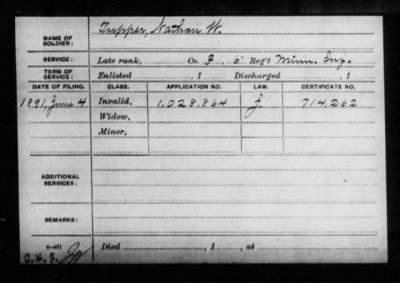 NAME OF SOLDIER: Tupper, Nathan W.
SERVICE: Late rank, Co. F, 6 Reg't Minn. Inf.
TERM OF SERVICE: Enlisted , 1 Discharged , 1
DATE OF FILING. CLASS. APPLICATION NO. LAW. CERTIFICATE NO.
1891, June 4 Invalid, 1,028,864 J. 714,262
Widow,
Minor,
ADDITIONAL SERVICES:
REMARKS:
Died , 1 , at